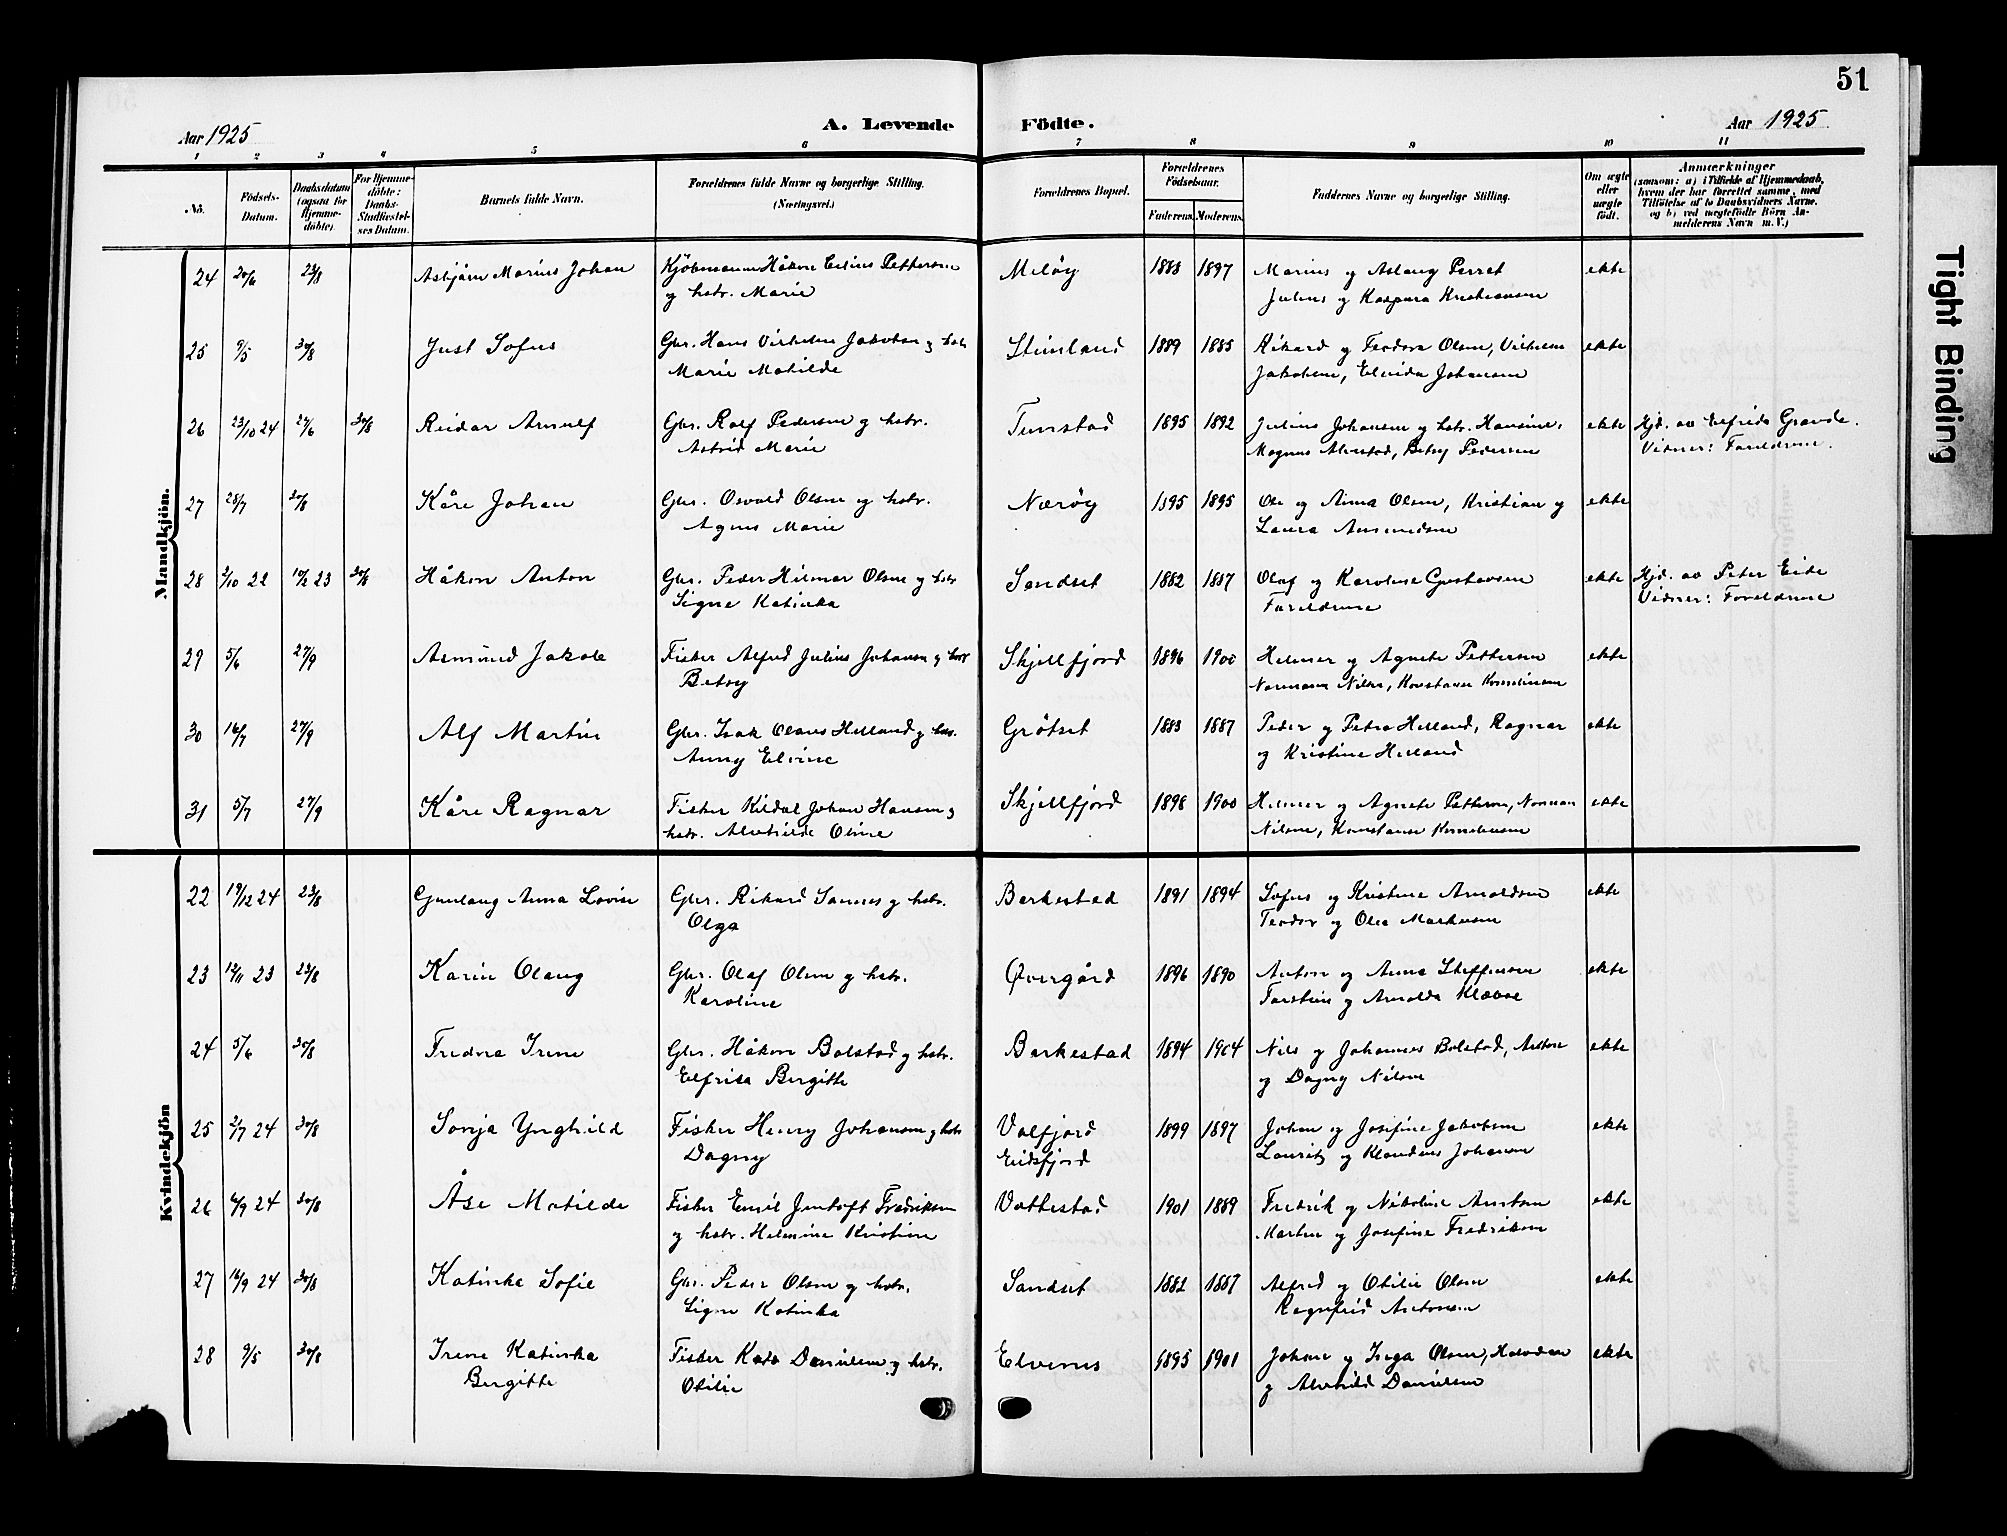 51
Aar 1925
A. Levende Födte.
Aar 1925
1 2 3 4 5 6 7 8 9 10 11
No.
Födsels-Datum.
Daabsdatum (ogsaa for Hjemmedöbte).
For Hjemmedöbte: Daabs-Stadfæstelses Datum.
Barnets fulde Navn.
Forældrenes fulde Navne og borgerlige Stilling.
(Næringsvei.)
Forældrenes Bopæl.
Forældrenes Födselsaar.
Faderens. Moderens.
Faddernes Navne og borgerlige Stilling.
Om ægte eller uægte födt.
Anmærkninger
(saasom: a) i Tilfælde af Hjemmedaab, hvem der har forrettet samme, med Tilföielse af to Daabsvidners Navne. og b) ved uægtefödte Börn Anmelderens Navn m. V.)
Mandkjön.
24 20/6 23/8 Asbjörn Marius Johan Kjöbmann Håkon Edius Pettersen Melöy 1888 1897 Marius og Aslaug Perret ekte
og hstr. Marie Julius og Kaspara Kristiansen
25 9/5 30/8 Just Sofus Gbr. Hans Vilhelm Jakobsen og hstr Steinland 1889 1885 Rikard og Teodora Olsen, Vilhelm ekte
Marie Matilde Jakobsen, Elvida Johansen
26 23/10 24 27/6 30/8 Reidar Arnulf Gbr. Rolf Pedersen og hstr. Tunstad 1895 1892 Julius Johansen og hstr. Hansine, ekte Hjd. av Elfrida Grande.
Astrid Marie Magnus Alvestad, Betsy Pedersen Vidner: Foreldrene.
27 28/7 30/8 Kåre Johan Gbr. Osvald Olsen og hstr. Næröy 1895 1895 Ole og Anna Olsen, Kristian og ekte
Agnes Marie Laura Amundsen
28 2/10 22 10/2 23 30/8 Håkon Anton Gbr. Peder Hilmar Olsen og hstr Sandset 1882 1887 Olaf og Karoline Gustavsen ekte Hjd. av Peter Eide
Signe Katinka Foreldrene Vidner: Foreldrene
29 5/6 27/9 Asmund Jakob Fisker Alfred Julius Johansen og hstr Skjellfjord 1896 1900 Helmer og Agnete Pettersen ekte
Betsy Normann Nilsen, Konstanse Kornelinssen
30 16/7 27/9 Alf Martin Gbr. Isak Olaus Helland og hstr. Grötset 1883 1887 Peder og Petra Helland, Ragnar ekte
Anny Elvine og Kristine Helland
31 5/7 27/9 Kåre Ragnar Fisker Kildal Johan Hansen og Skjellfjord 1898 1900 Helmer og Agnete Pettersen, Norman ekte
hstr. Alvhilde Oline Nilsen, Konstanse Korneliussen
Kvindekjön
22 19/12 24 23/8 Gunlaug Anna Lovise Gbr. Rikard Sannes og hstr. Barkestad 1891 1894 Sofus og Kristine Arnoldsen ekte
Olga Teodor og Olea Markussen
23 12/11 23 23/8 Karin Olaug Gbr. Olaf Olsen og hstr. Øvergård 1896 1890 Anton og Anna Steffensen ekte
Karoline Torstein og Arnolda Klæboe
24 5/6 30/8 Fredna Irene Gbr. Håkon Bolstad og hstr. Barkestad 1894 1904 Nils og Johannes Bolstad, Anton ekte
Elfrida Bergitte og Dagny Nilsen
25 2/7 24 30/8 Sonja Ynghild Fisker Henry Johansen og hstr Valfjord 1899 1897 Johan og Josefine Jakobsen ekte
Dagny Eidsfjord Lauritz og Klaudius Johansen
26 6/9 24 30/8 Åse Matilde Fisker Emil Jentoft Fredriksen Vottestad 1901 1889 Fredrik og Nikoline Arntsen ekte
og hstr. Helmine Kristine Martin og Josefine Fredriksen
27 16/9 24 30/8 Katinka Sofie Gbr. Peder Olsen og hstr. Sandset 1882 1887 Alfred og Otilie Olsen ekte
Signe Katinka Ragnfrid Antonsen
28 9/5 30/8 Irene Katinka Fisker Kato Danielsen og hstr. Elvenes 1895 1901 Johan og Inga Olsen, Halvdan ekte
Bergitte Otilie og Alvhild Danielsen
Tight Binding